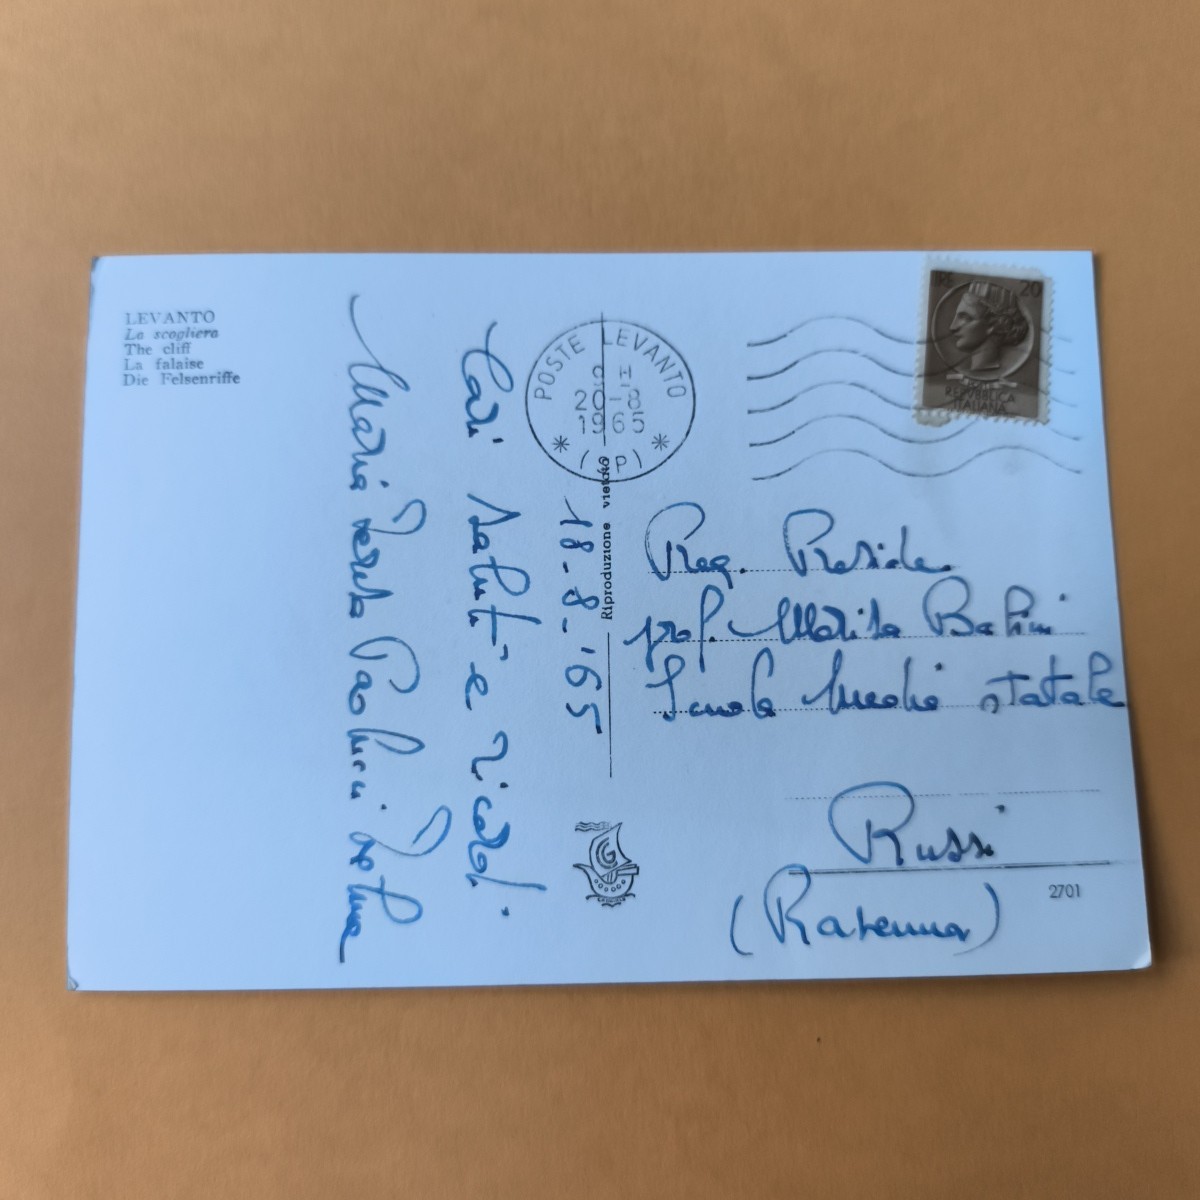 LEVANTO
La scogliera
The cliff
La falaise
Die Felsenriffe
POSTE LEVANTO
20-8
1965
(SP)
LIRE 20
REPVBBLICA
ITALIANA
18-8-'65
Cari saluti e ricordi.
Maria Teresa Paolucci
Riproduzione vietata
Preg. Preside
prof. Marisa
Scuola Media statale
Russi
(Ravenna)
G
2701